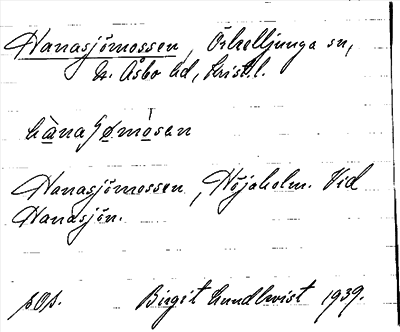 Hanasjömossen, Örkelljunga sn,
N. Åsbo hd, Krist.l.
hànaʃømòsen
Hanasjömossen, Höjaholm. Vid
Hanasjön.
Birgit Lundkvist 1939.